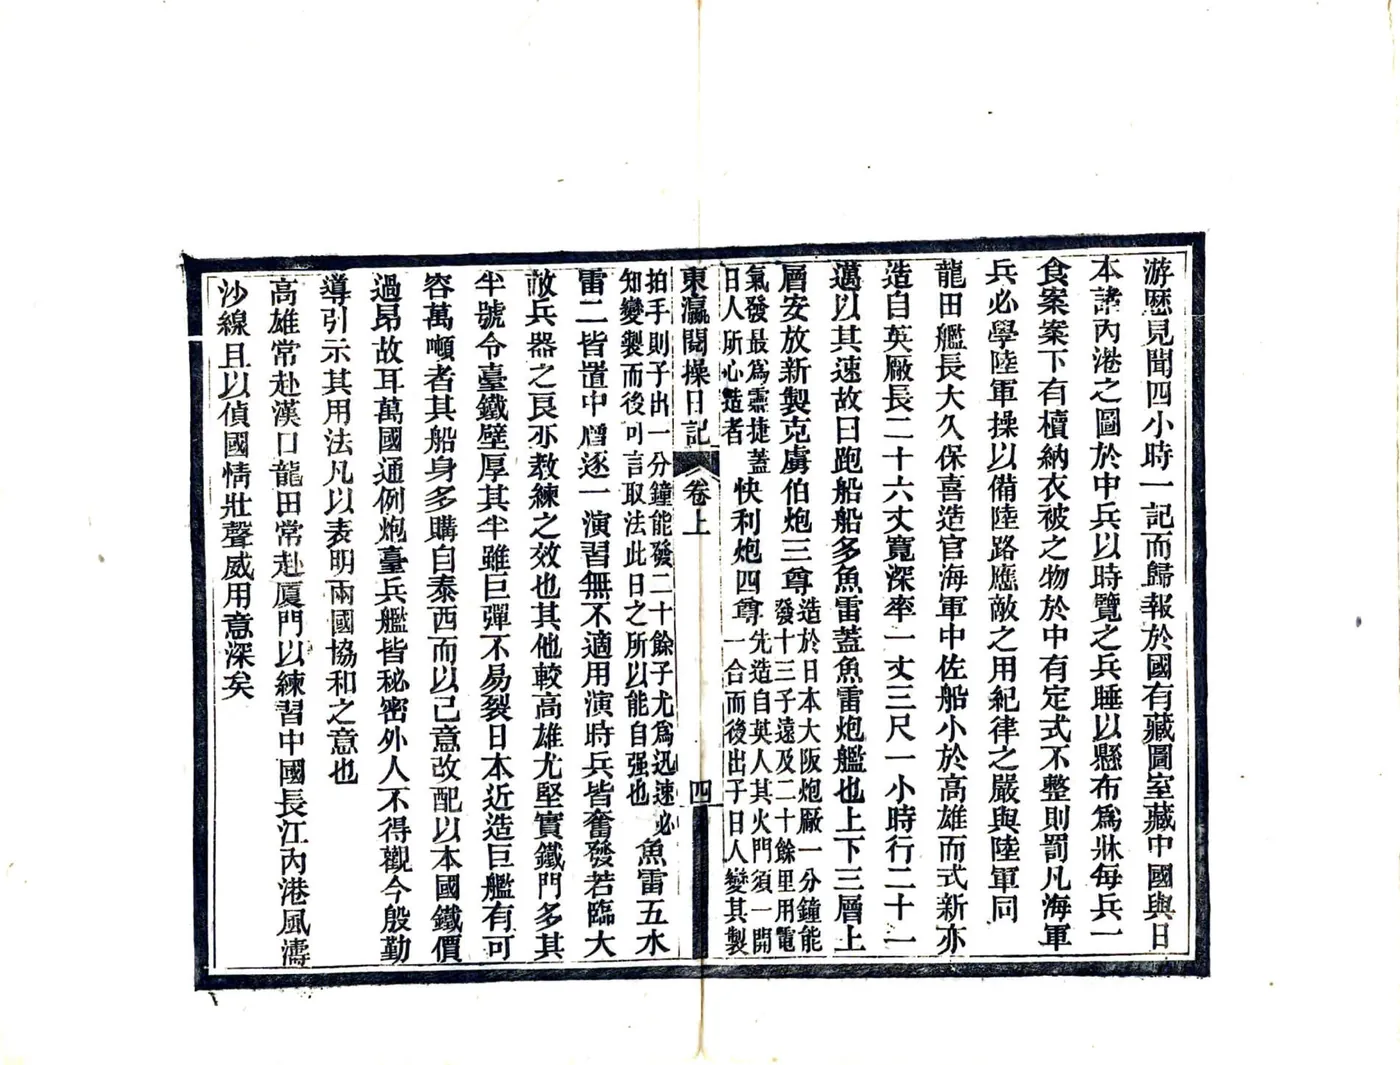 游歷見聞四小時一記而歸報於國有藏圖室藏中國與日
本諸內港之圖於中兵以時覽之兵睡以懸布爲牀每兵一
食案案下有櫝納衣被之物於中有定式不整則罰凡海軍
兵必學陸軍操以備陸路應敵之用紀律之嚴與陸軍同
龍田艦長大久保喜造官海軍中佐船小於高雄而式新亦
造自英廠長二十六丈寬深率一丈三尺一小時行二十一
邁以其速故曰跑船船多魚雷蓋魚雷炮艦也上下三層上
層安放新製克虜伯炮三尊造於日本大阪炮廠一分鐘能
發十三子遠及二十餘里用電
氣發最爲靈捷蓋
日人所心造者
快利炮四尊先造自英人其火門須一開
一合而後出子日人變其製
東瀛閱操日記 卷上 四
拍手則子出一分鐘能發二十餘子尤爲迅速必
知變製而後可言取法此日之所以能自强也
魚雷五水
雷二皆置中層逐一演習無不適用演時兵皆奮發若臨大
敵兵器之良亦教練之效也其他較高雄尤堅實鐵門多其
半號令臺鐵壁厚其半雖巨彈不易裂日本近造巨艦有可
容萬噸者其船身多購自泰西而以己意改配以本國鐵價
過昂故耳萬國通例炮臺兵艦皆秘密外人不得觀今殷勤
導引示其用法凡以表明兩國協和之意也
高雄常赴漢口龍田常赴厦門以練習中國長江內港風濤
沙線且以偵國情壯聲威用意深矣